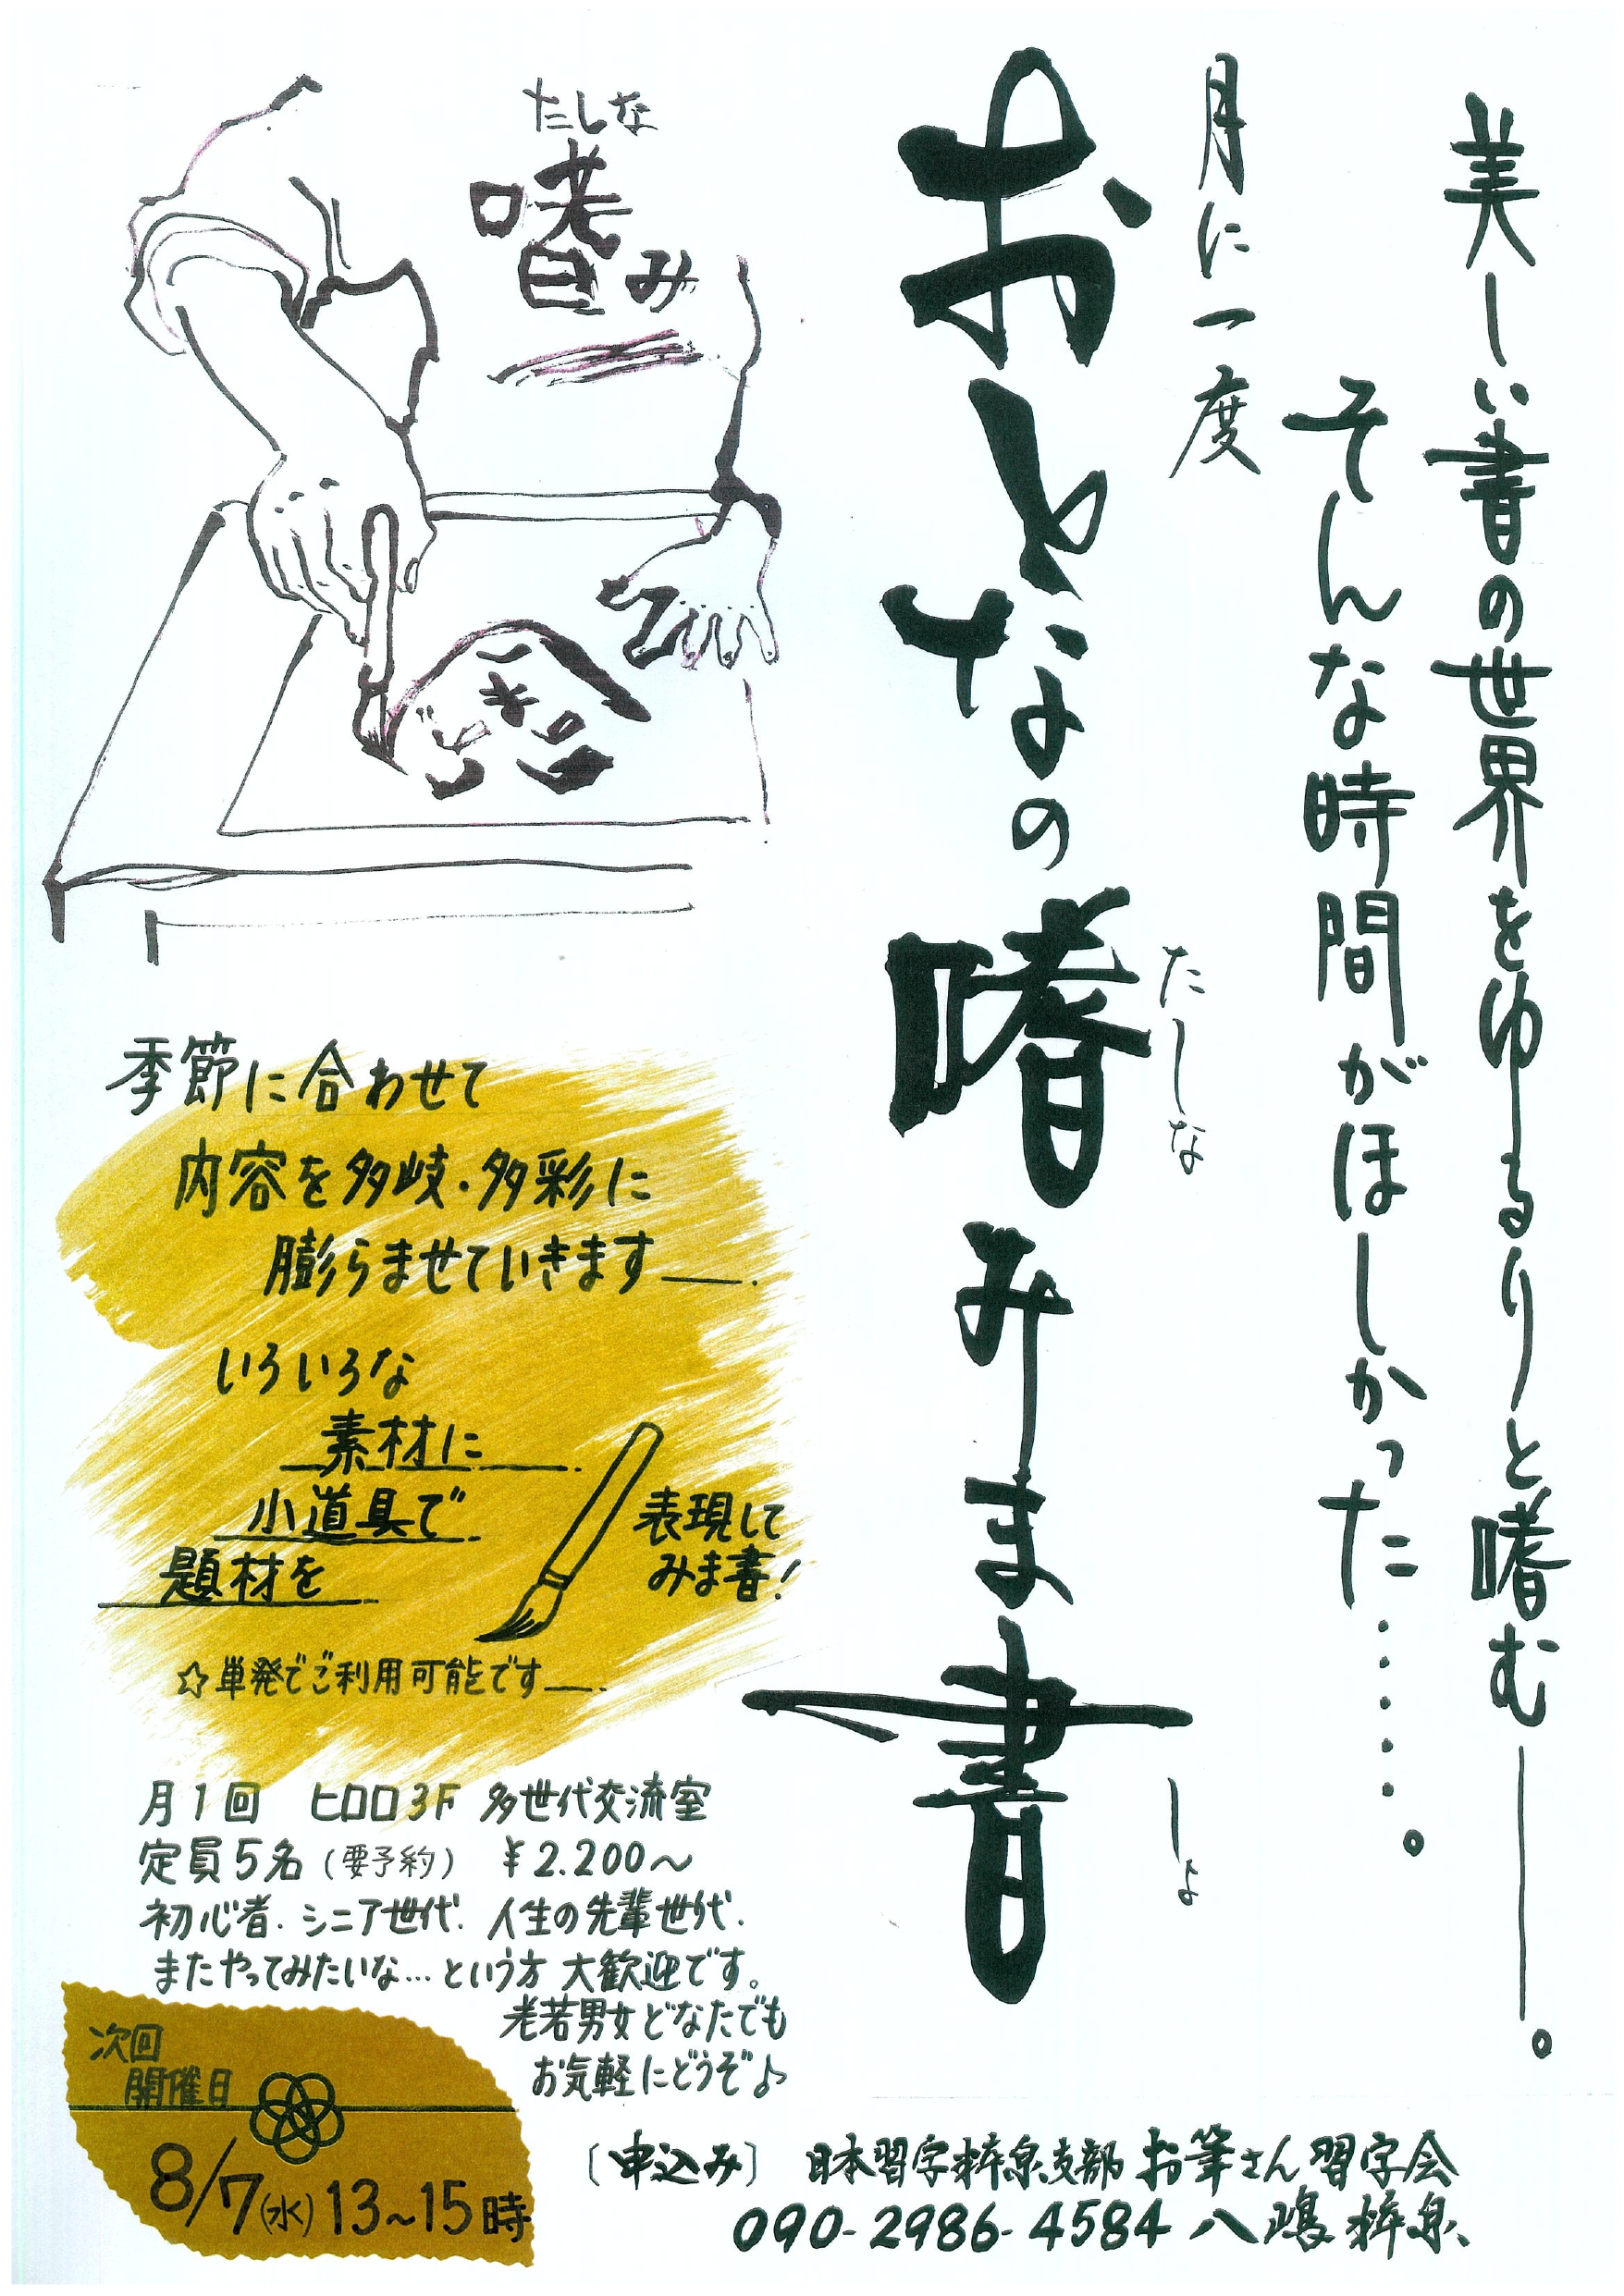 美しい書の世界をゆるりと嗜む――。
そんな時間がほしかった……。
月に一度
おとなの嗜みま書
たしな
しょ
たしな
嗜み
季節に合わせて
内容を多岐・多彩に
膨らませていきます―.
いろいろな
素材に
小道具で
題材を
表現して
みま書!
☆単発でご利用可能です―.
月1回 ヒロロ3F 多世代交流室
定員5名(要予約) ¥2.200～
初心者.シニア世代.人生の先輩世代.
またやってみたいな…という方 大歓迎です。
老若男女どなたでも
お気軽にどうぞ♪
次回
開催日
8/7(水)13~15時
〔申込み〕 日本習字梓泉支部 お筆さん習字会
090-2986-4584 八嶋梓泉